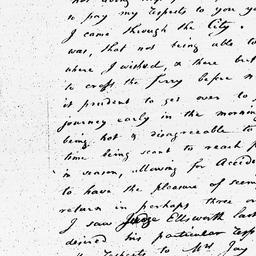 to pay my respects to you ye
I came through the City.
was, that not being able to
where I wished, & there but
to cross the ferry before n
is prudent to get over to
journey early in the mornin
being hot & disagreeable to
time being scant to reach
in season, allowing for Accide
to have the pleasure of seein
return in perhaps three or
I saw Judge Ellsworth last
desired his particular resp
respects to Mrs. Jay